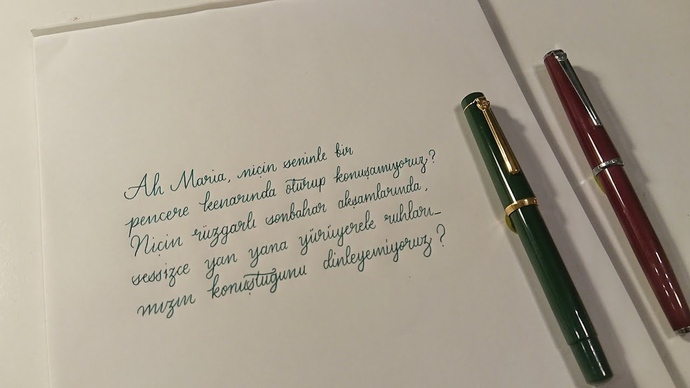 Ah Maria, niçin seninle bir
pencere kenarında oturup konuşamıyoruz?
Niçin rüzgarlı sonbahar akşamlarında,
sessizce yan yana yürüyerek ruhları_
mızın konuştuğunu dinleyemiyoruz?